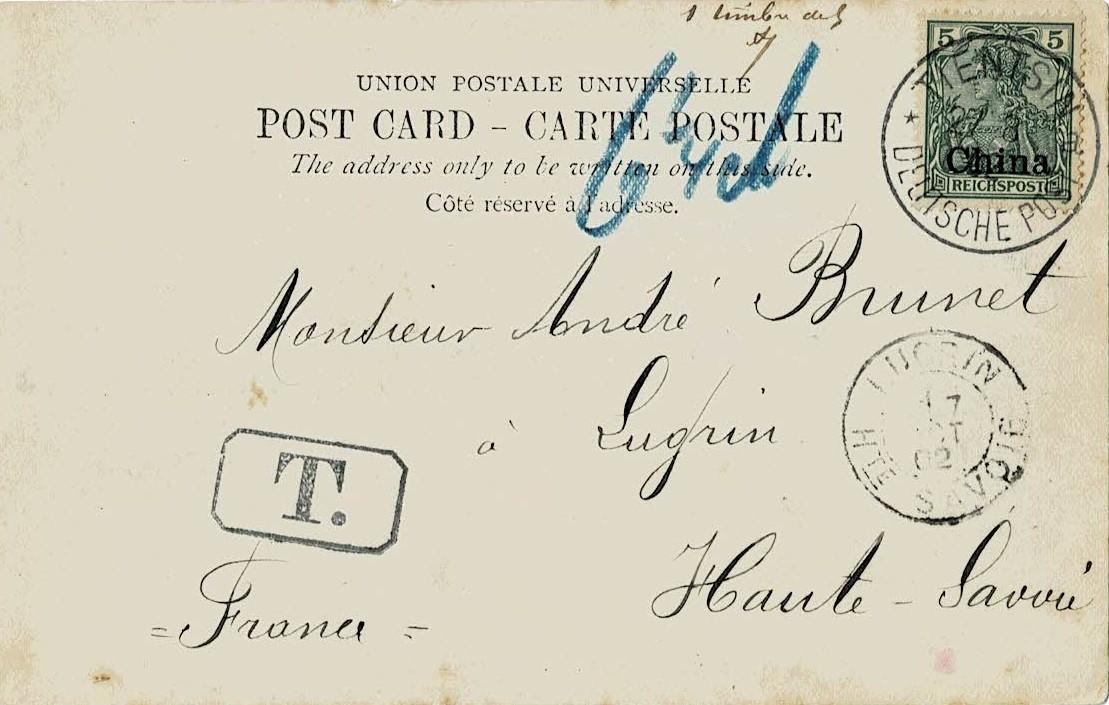 1 timbre de 5
UNION POSTALE UNIVERSELLE
POST CARD – CARTE POSTALE
The address only to be written on this side.
Côté réservé à l'adresse.
5 5
China
REICHSPOST
TIENTSIN
27
DEUTSCHE POST
Monsieur André Brunet
à Lugrin
LUGRIN
17
OCT
02
HTE SAVOIE
T.
Haute-Savoie
= France =